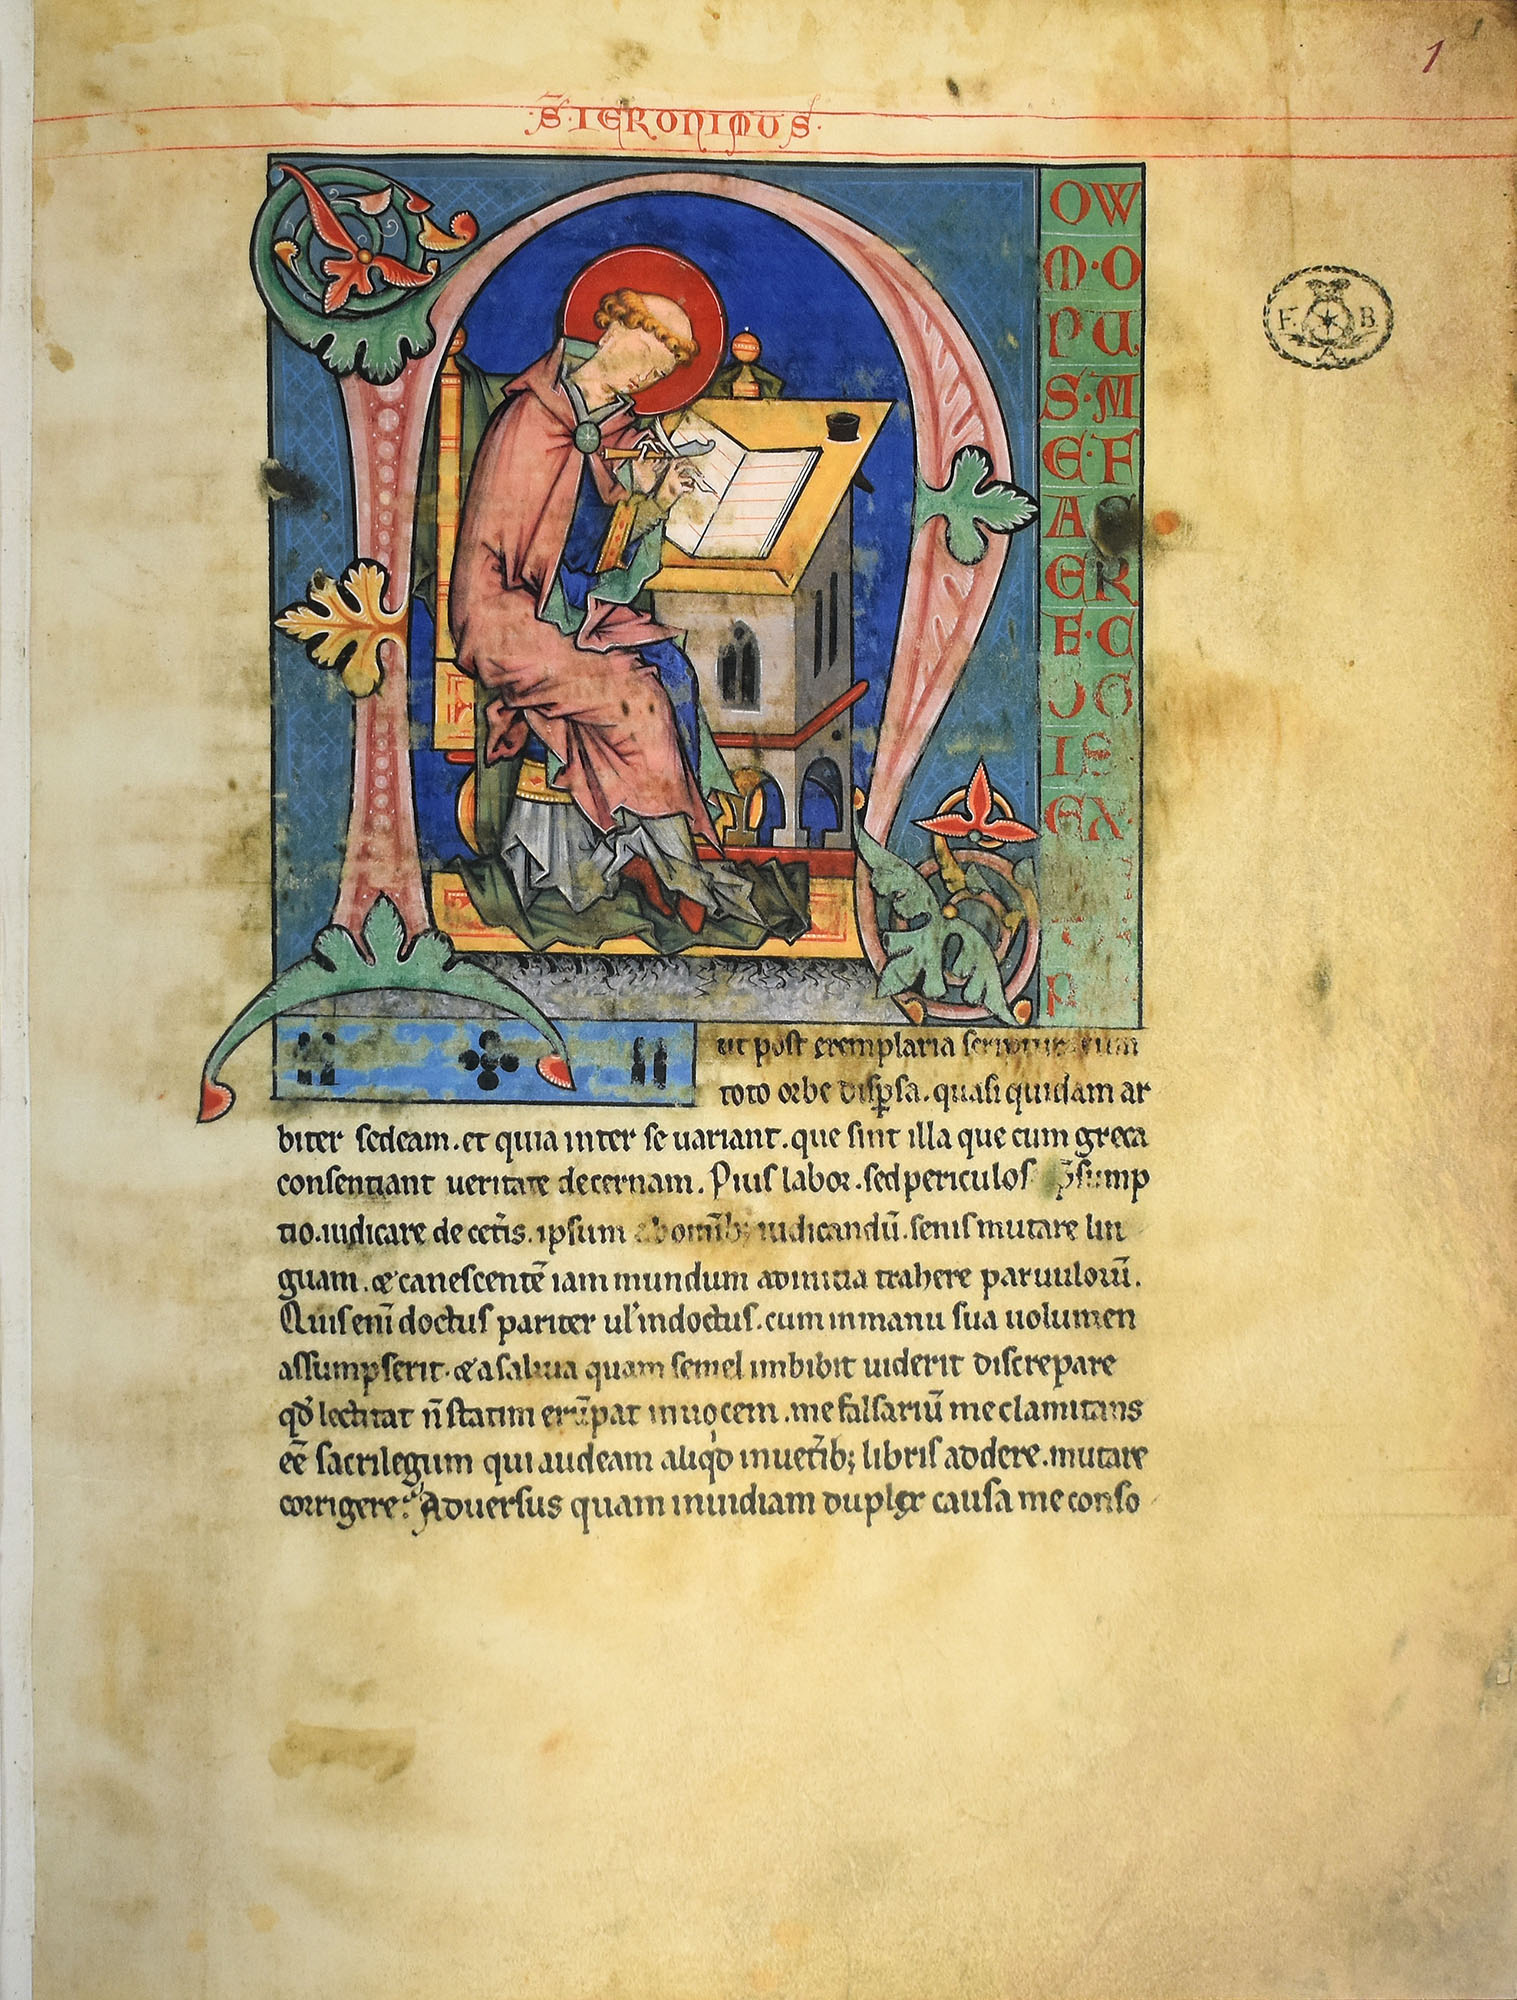 1
S̄·IERONIMUS·
N
OW
M·O
PU
S·M
E·F
A
ER
E·C
JG
IS
EX·
P
ut post exemplaria
toto orbe disp̱sa. quasi quidam ar
biter sedeam. et quia inter se uariant. que sint illa que cum greca
consentiant ueritate decernam. Pius labor. sed periculos p̄sump
tio. iudicare de cet̄is. ipsum ab omīb; iudicandū. senis mutare lin
guam. & canescentē iam mundum ad initia trahere paruuloꝝ̄.
Quis eni᷒ doctus pariter ul' indoctus. cum in manu sua uolumen
assumpserit. & a saliua quam semel imbibit uiderit discrepare
qd̄ lectitat n̄ statim erūpat in uocem. me falsariū me clamitans
eē sacrilegum qui audeam aliqd̓ in uet̄ib; libris addere. mutare
corrigere. Aduersus quam inuidiam duplex causa me conso
F. B.
A